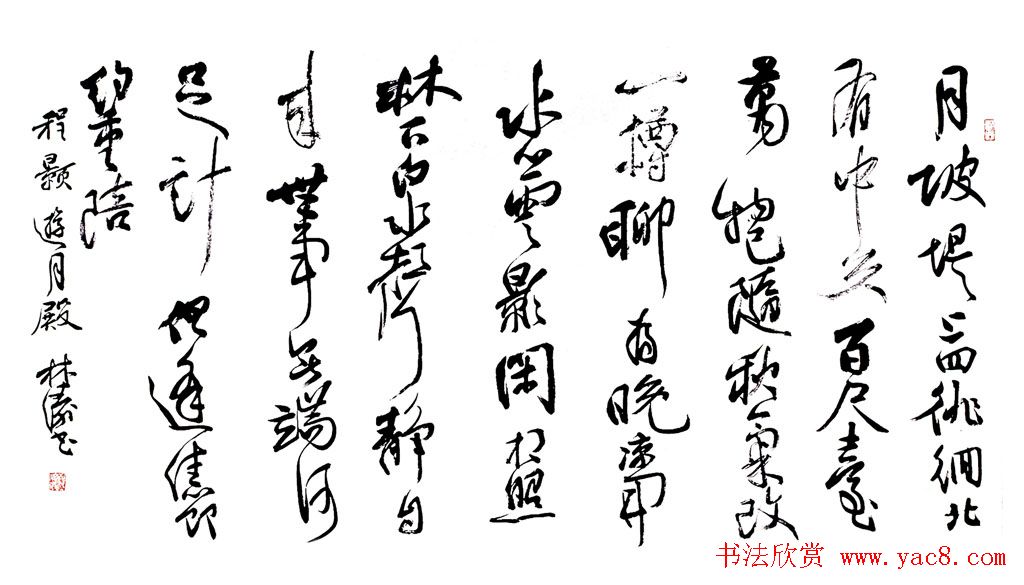 月陂堤上四徘徊北
有中天百尺臺
萬物已隨秋氣改
一樽聊為晚涼開
水心雲影閑相照
林下泉聲靜自
来世事無端何
足計但逢佳節
約重陪
程顥遊月殿 林书
书法欣赏 www.yac8.com